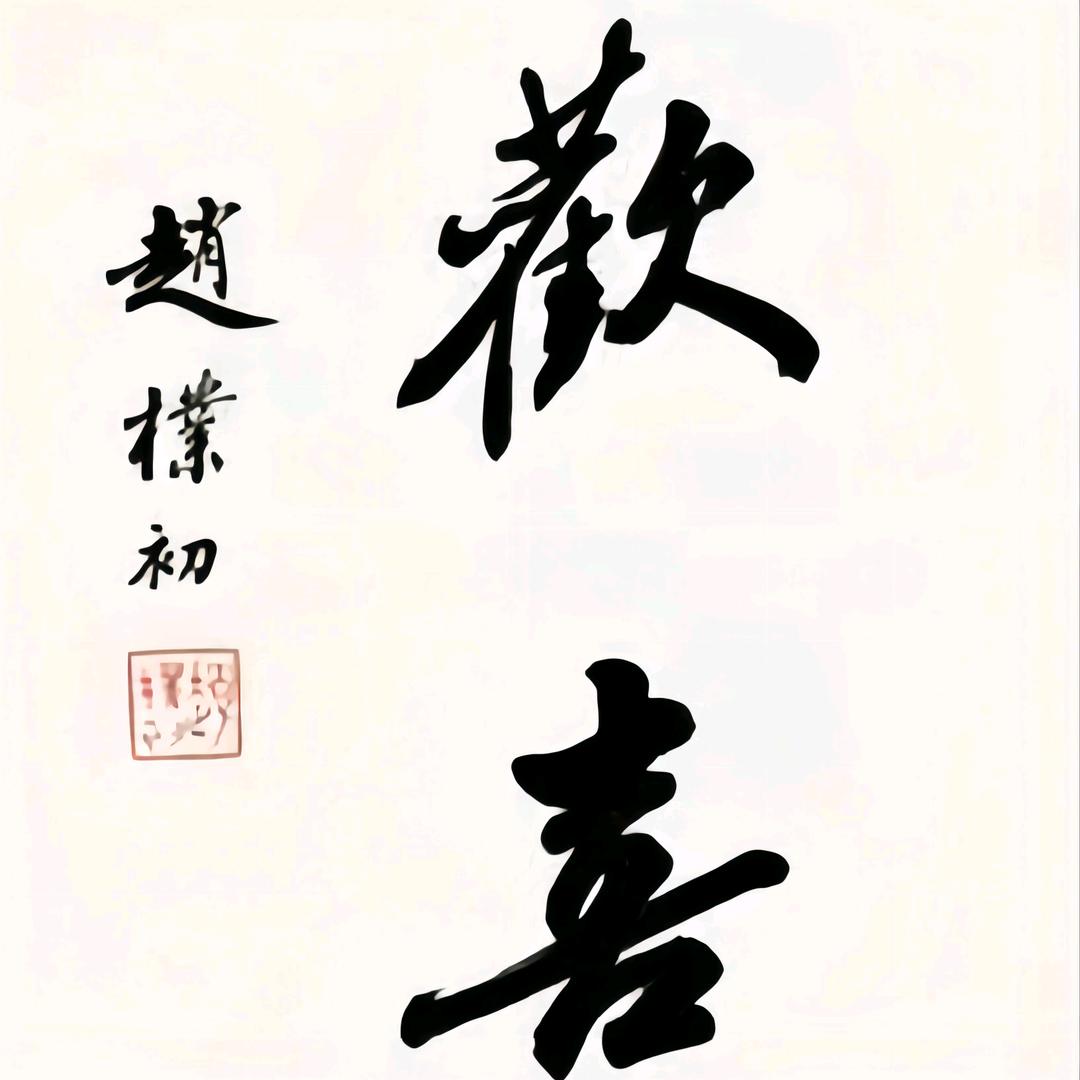 歡喜
趙樸初